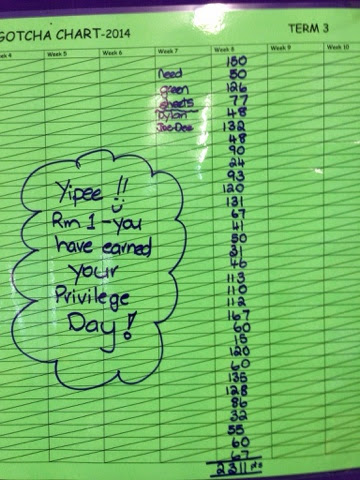 GOTCHA CHART-2014 TERM 3
Week 5 Week 6 Week 7 Week 8 Week 9 Week 10
need
green
sheets
Dylan
Joe-Dee
150
50
126
77
48
132
48
90
24
93
120
131
67
41
50
31
46
113
110
112
167
60
15
120
60
135
128
86
32
55
60
67
2311 pts
Yipee !!
Rm 1 - you
have earned
your
Privilege
Day!